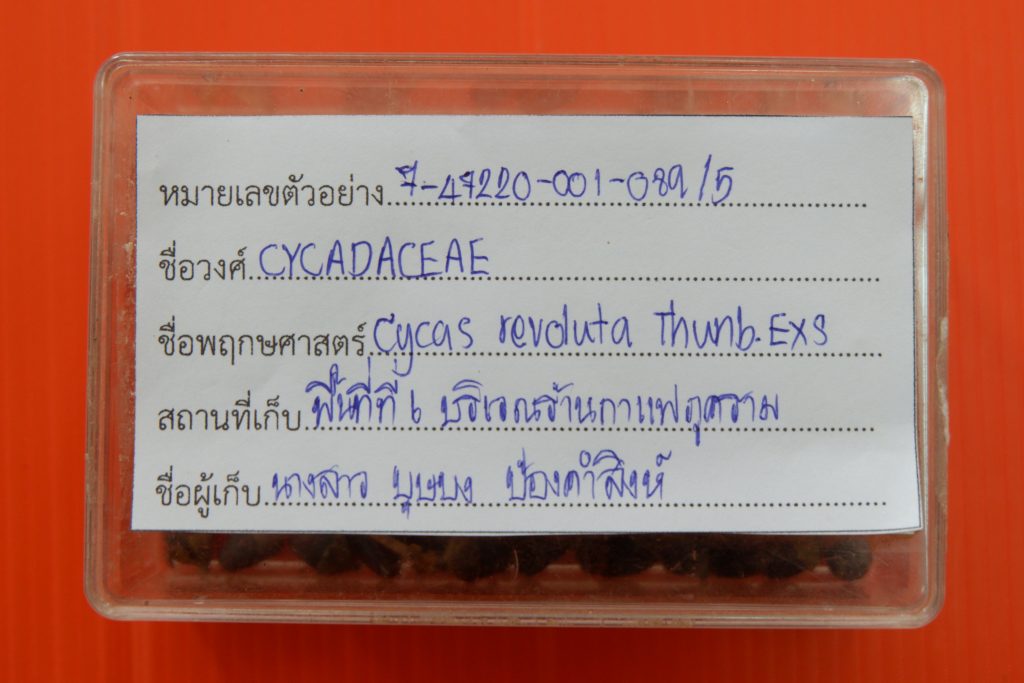 หมายเลขตัวอย่าง 7-47220-001-089/5
ชื่อวงศ์ CYCADACEAE
ชื่อพฤกษศาสตร์ Cycas revoluta Thunb. EXS
สถานที่เก็บ พื้นที่ที่ 6 บริเวณร้านกาแฟภูคราม
ชื่อผู้เก็บ นางสาว บุษบง ป้องคำสิงห์